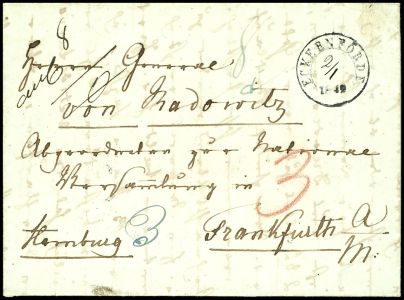 8
Herrn General
von Radowitz
Abgeordneten zur National
Versamlung in
Hamburg 3 Frankfurth a/m:
3
ECKERNFÖRDE
2/1
1849